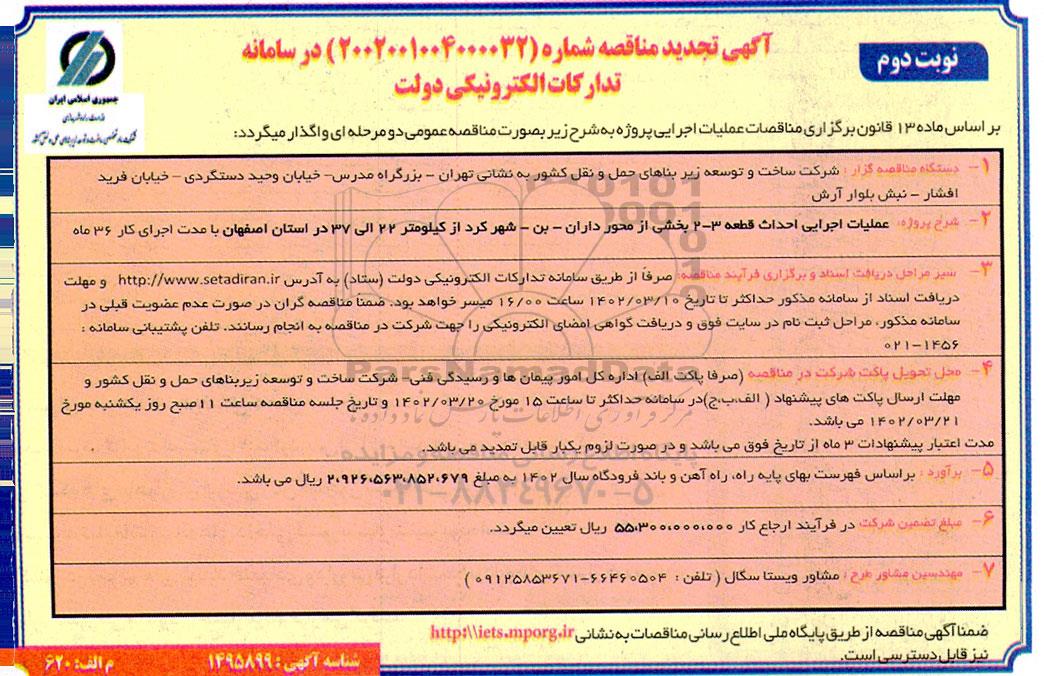 نوبت دوم
آگهی تجدید مناقصه شماره (۲۰۰۲۰۰۱۰۰۴۰۰۰۰۳۲) در سامانه
تدارکات الکترونیکی دولت
جمهوری اسلامی ایران
بر اساس ماده ۱۳ قانون برگزاری مناقصات عملیات اجرایی پروژه به شرح زیر بصورت مناقصه عمومی دو مرحله ای واگذار میگردد:
۱- دستگاه مناقصه گزار : شرکت ساخت و توسعه زیر بناهای حمل و نقل کشور به نشانی تهران - بزرگراه مدرس- خیابان وحید دستگردی - خیابان فرید
افشار - نبش بلوار آرش
۲- شرح پروژه: عملیات اجرایی احداث قطعه ۳-۲ بخشی از محور داران - بن - شهر کرد از کیلومتر ۲۲ الی ۳۷ در استان اصفهان با مدت اجرای کار ۳۶ ماه
۳- سیر مراحل دریافت اسناد و برگزاری فرآیند مناقصه: صرفاً از طریق سامانه تدارکات الکترونیکی دولت (ستاد) به آدرس http://www.setadiran.ir و مهلت
دریافت اسناد از سامانه مذکور حداکثر تا تاریخ ۱۴۰۲/۰۳/۱۰ ساعت ۱۶/۰۰ میسر خواهد بود. ضمناً مناقصه گران در صورت عدم عضویت قبلی در
سامانه مذکور، مراحل ثبت نام در سایت فوق و دریافت گواهی امضای الکترونیکی را جهت شرکت در مناقصه به انجام رسانند. تلفن پشتیبانی سامانه :
۰۲۱-۱۴۵۶
۴- محل تحویل پاکت شرکت در مناقصه (صرفا پاکت الف) اداره کل امور پیمان ها و رسیدگی فنی- شرکت ساخت و توسعه زیربناهای حمل و نقل کشور و
مهلت ارسال پاکت های پیشنهاد ( الف،ب،ج)در سامانه حداکثر تا ساعت ۱۵ مورخ ۱۴۰۲/۰۳/۲۰ و تاریخ جلسه مناقصه ساعت ۱۱صبح روز یکشنبه مورخ
۱۴۰۲/۰۳/۲۱ می باشد.
مدت اعتبار پیشنهادات ۳ ماه از تاریخ فوق می باشد و در صورت لزوم یکبار قابل تمدید می باشد.
۵- برآورد : براساس فهرست بهای پایه راه، راه آهن و باند فرودگاه سال ۱۴۰۲ به مبلغ ۲،۹۲۶،۵۶۳،۸۵۲،۶۷۹ ریال می باشد.
۶- مبلغ تضمین شرکت در فرآیند ارجاع کار ۵۵،۳۰۰،۰۰۰،۰۰۰ ریال تعیین میگردد.
۷- مهندسین مشاور طرح : مشاور ویستا سگال ( تلفن : ۶۶۴۶۰۵۰۴-۰۹۱۲۵۸۵۳۶۷۱ )
ضمنا آگهی مناقصه از طریق پایگاه ملی اطلاع رسانی مناقصات به نشانی http:\\iets.mporg.ir
نیز قابل دسترسی است.
شناسه آگهی : ۱۴۹۵۸۹۹ م الف: ۶۲۰
ParsNamadData
۰۲۱-۸۸۳۴۹۶۷۰-۵